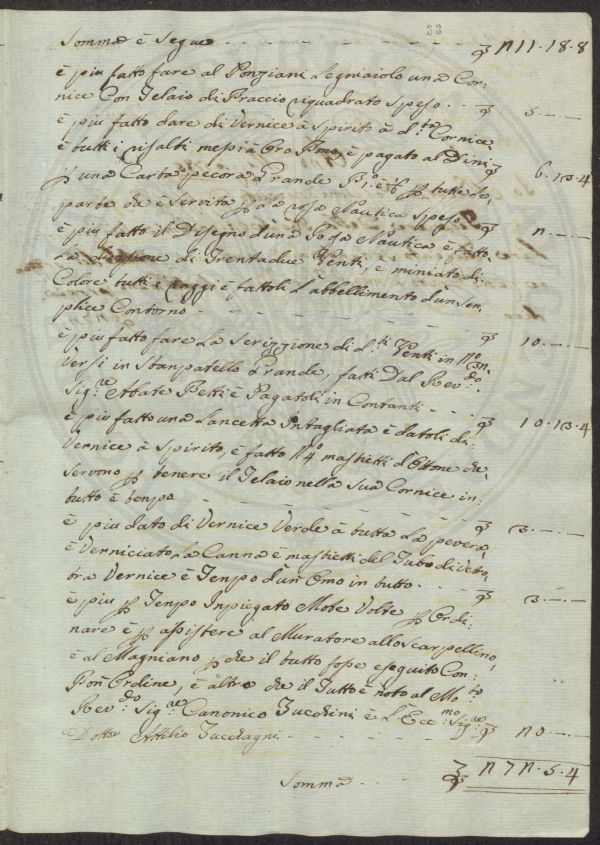 33
Somma è Segue - - - - - - ₰ n11.18.8
è piu fatto fare al Ponziani Legniaiolo una Cor:
nice Con Telaio di Braccio riquadrato speso. - - ₰ 5.—.—
è piu fatto dare di Vernice à spirito à d.ta Cornice,
è tutti i risalti messi à Oro Bono, è pagato al Dini ₰ 6.13.4
ꝑ una Carta pecora Grande
parte che è servita ꝑ la rosa Nautica speso ₰ n.—.—
è piu fatto il Disegno d'una Rosa Nautica è fatto
La di Trentadue Venti, è miniato di
Colore tutti i raggi è fattoli L'abbellimento d'un Sen:
plice Contorno - - - - - ₰ 10.—.—
è piu fatto fare La Scrizzione di d.ti Venti in n.o
Versi in Stanpatello Grande, fatti Dal Rev.do
Sig.re Abate Betti è Pagatoli in Contanti - - ₰ 10.13.4
è piu fatto una Lancetta Intagliata è datoli di
Vernice à Spirito, è fatto n.o 4 mastietti d'Ottone che
servono ꝑ tenere il Telaio nella sua Cornice in:
tutto è tenpo - - - - - - ₰ 3.—.—
è piu dato di Vernice Verde à tutta La pevera,
è Verniciato La Canna è mastietti del Tubo di Vetro,
tra Vernice è Tenpo d'un Omo in tutto. - - ₰ 3.—.—
è piu ꝑ Tenpo Inpiegato Molte Volte ꝑ Ordi:
nare è ꝑ assistere al Muratore allo scarpellino,
è al Magniano ꝑ che il tutto fosse eseguito Con
Bon Ordine, è altro che il Tutto è noto al Mo.to
Rev.do Sig.re Canonico Zucchini è L'Ecc.mo Sig.re ₰ n0.—.—
Dottor Attilio Zuccagni - - -
Somma - - - ₰ n7n.5.4